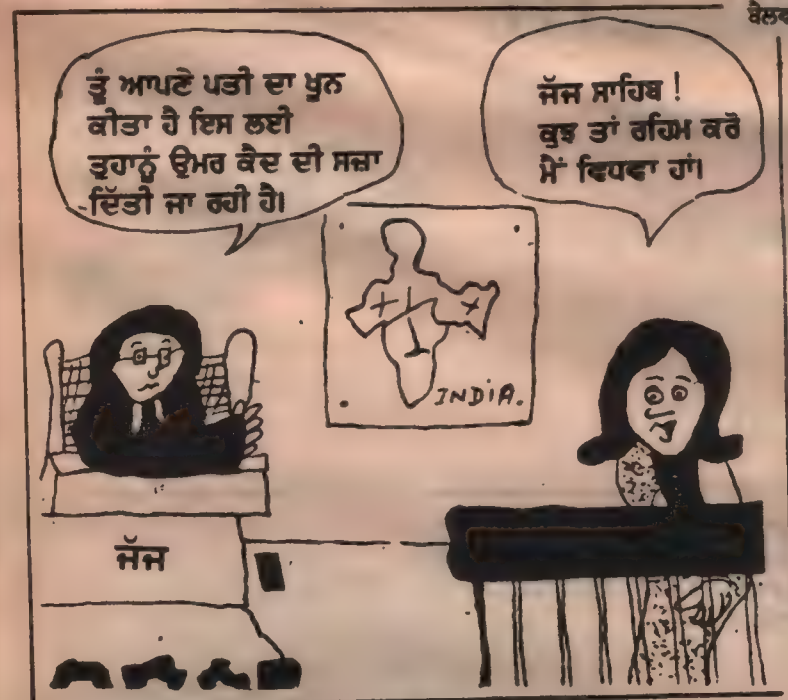 ਤੂੰ ਆਪਣੇ ਪਤੀ ਦਾ ਖੂਨ
ਕੀਤਾ ਹੈ ਇਸ ਲਈ
ਤੁਹਾਨੂੰ ਉਮਰ ਕੈਦ ਦੀ ਸਜ਼ਾ
ਦਿੱਤੀ ਜਾ ਰਹੀ ਹੈ।
ਜੱਜ ਸਾਹਿਬ !
ਕੁਝ ਤਾਂ ਰਹਿਮ ਕਰੋ
ਮੈਂ ਵਿਧਵਾ ਹਾਂ।
INDIA.
ਜੱਜ